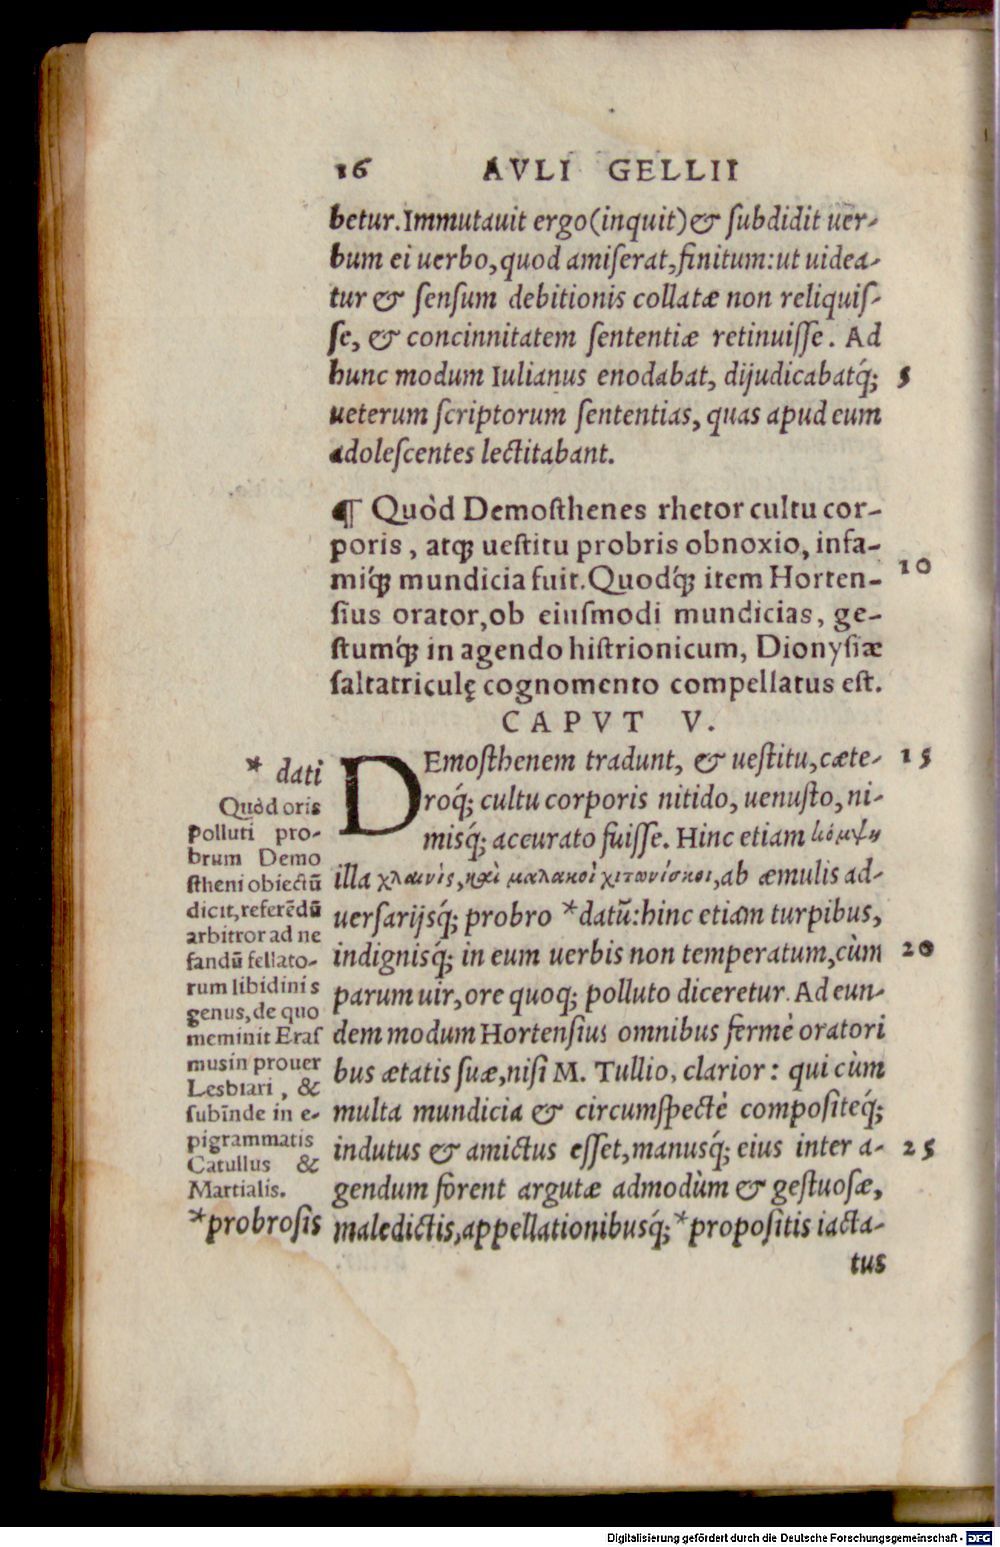 16 AVLI GELLII
betur. Immutauit ergo (inquit) & ſubdidit uer-
bum ei uerbo, quod amiſerat, finitum: ut uidea-
tur & ſenſum debitionis collatæ non reliquiſ-
ſe, & concinnitatem ſententiæ retinuiſſe. Ad
hunc modum Iulianus enodabat, dijudicabatq́; 5
ueterum ſcriptorum ſententias, quas apud eum
adoleſcentes lectitabant.
¶ Quòd Demoſthenes rhetor cultu cor-
poris, atq; ueſtitu probris obnoxio, infa-
miq́; mundicia fuit. Quodq́; item Horten- 10
ſius orator, ob eiuſmodi mundicias, ge-
ſtumq́; in agendo hiſtrionicum, Dionyſiæ
ſaltatriculę cognomento compellatus eſt.
CAPVT V.
DEmoſthenem tradunt, & ueſtitu, cæte- 15
roq́; cultu corporis nitido, uenuſto, ni-
misq́; accurato fuiſſe. Hinc etiam κόμψη
illa χλανὶς, καὶ μαλακοὶ χιτωνίσκοι, ab æmulis ad-
uerſarijsq́; probro *datū: hinc etiam turpibus,
indignisq́; in eum uerbis non temperatum, cùm 20
parum uir, ore quoq; polluto diceretur. Ad eun-
dem modum Hortenſius omnibus fermè oratori
bus ætatis ſuæ, niſi M. Tullio, clarior: qui cùm
multa mundicia & circumſpectè compoſiteq́;
indutus & amictus eſſet, manusq́; eius inter a- 25
gendum forent argutæ admodùm & geſtuoſæ,
maledictis, appellationibusq́; *propoſitis iacta-
tus
* dati
Quòd oris
polluti pro-
brum Demo
ſtheni obiectū
dicit, referēdū
arbitror ad ne
fandū fellato-
rum libidinis
genus, de quo
meminit Eraſ
mus in prouer
Lesbiari, &
ſubīnde in e-
pigrammatis
Catullus &
Martialis.
*probroſis
Digitalisierung gefördert durch die Deutsche Forschungsgemeinschaft - DFG